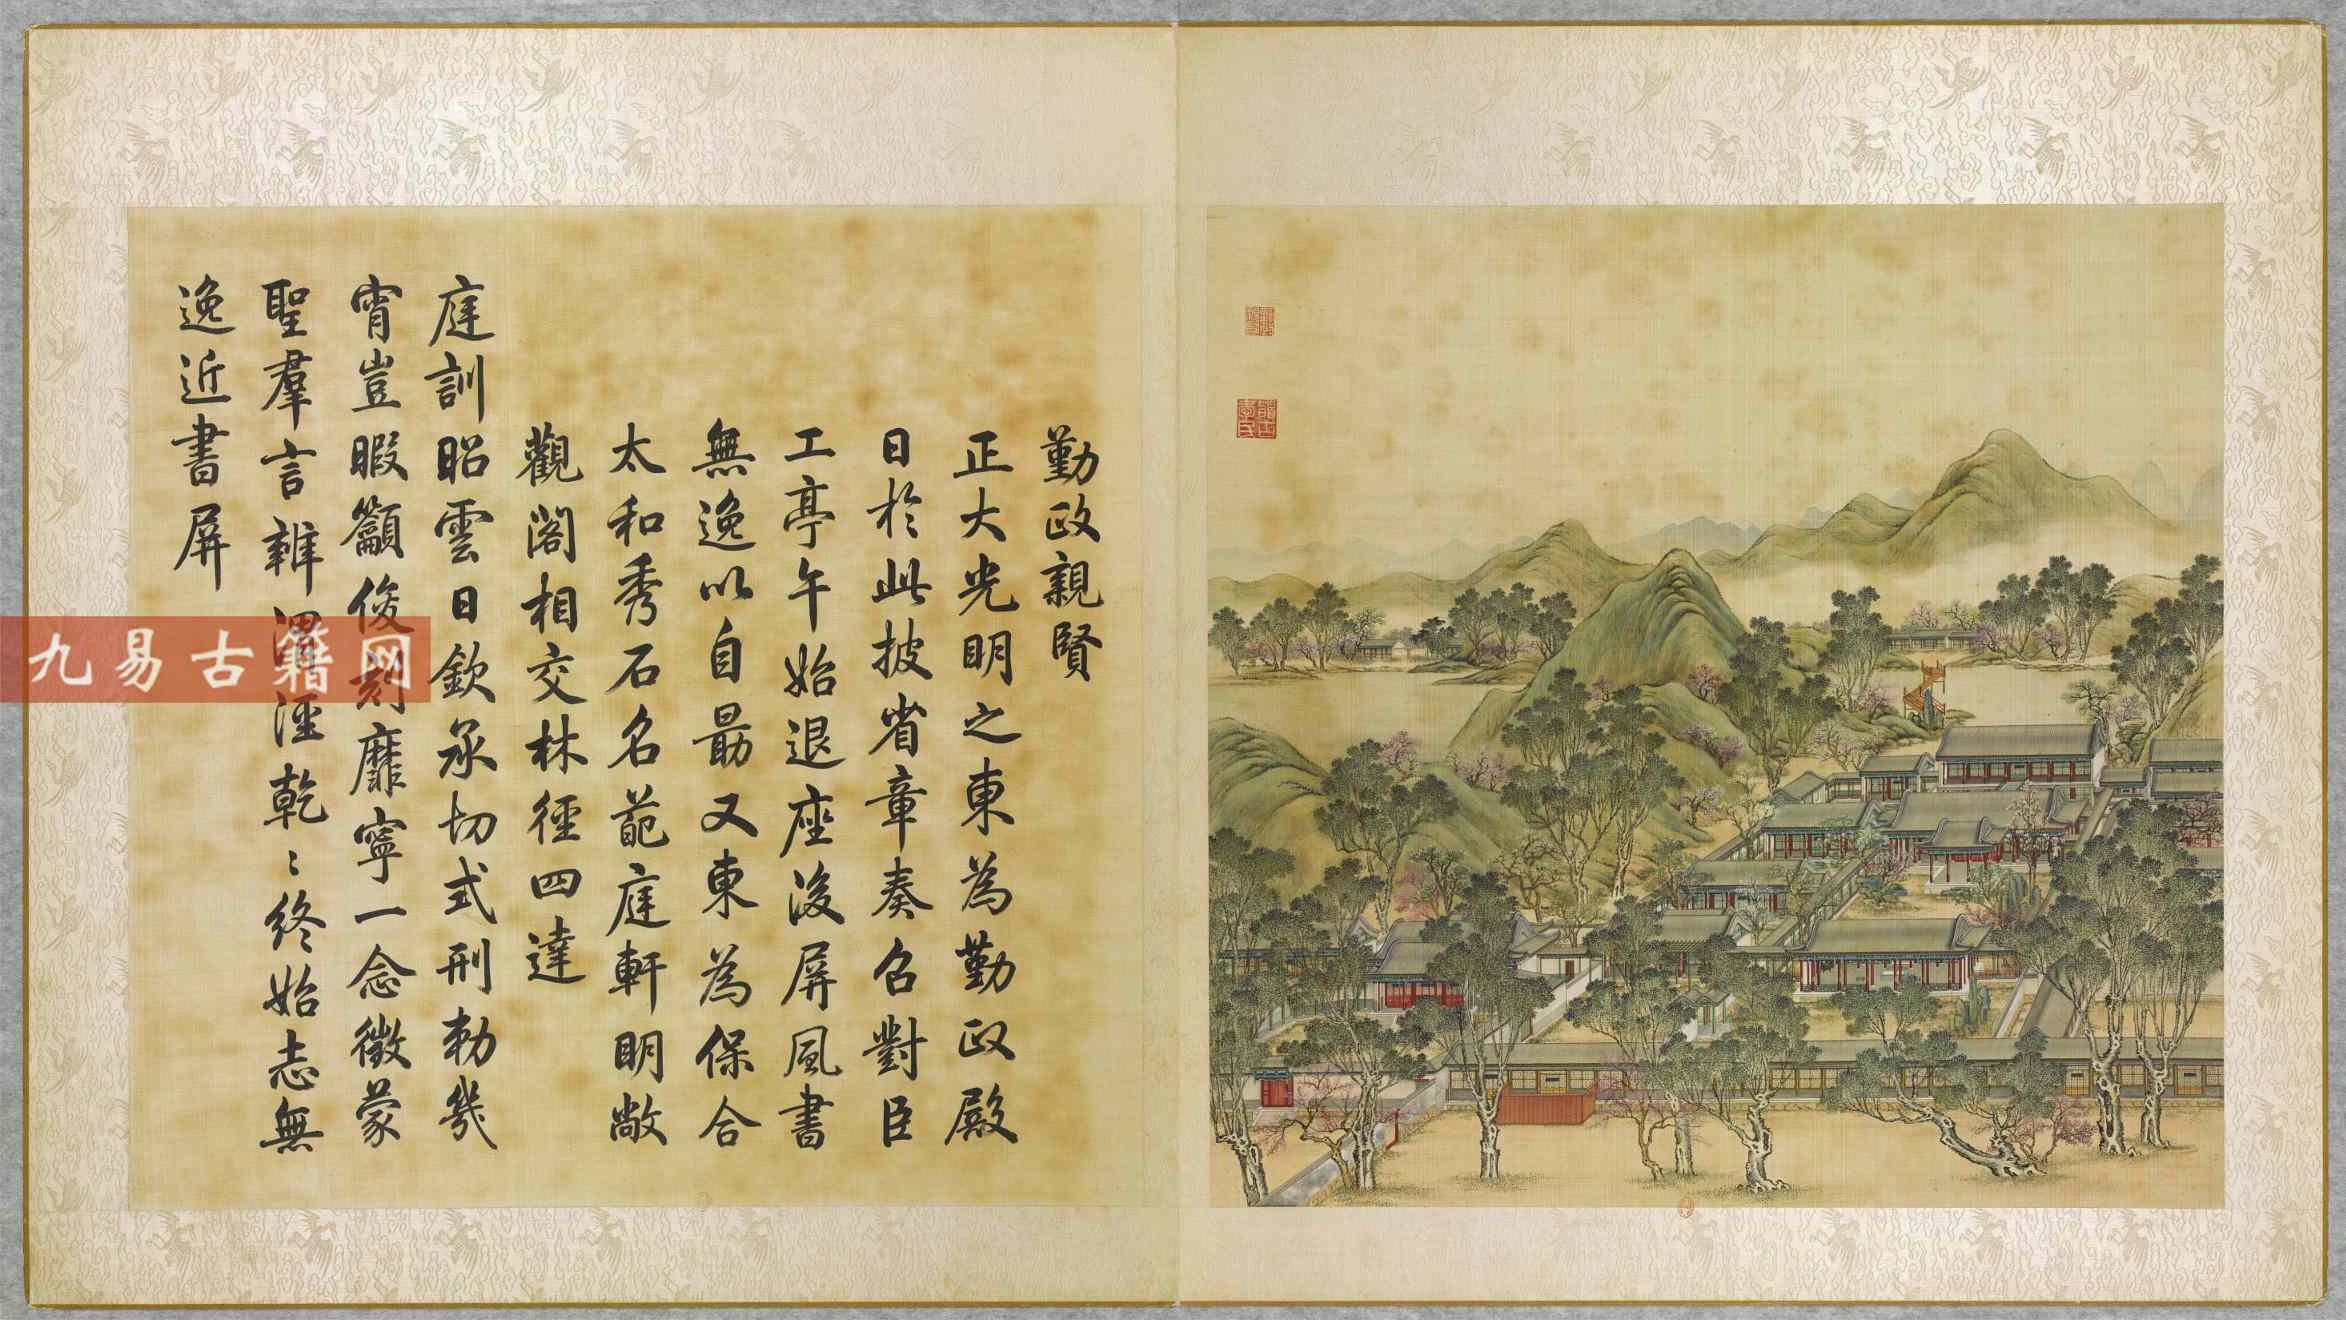 勤政親賢
正大光明之東為勤政殿
日於此披省章奏召對臣
工亭午始退座後屏風書
無逸以自勗又東為保合
太和秀石名葩庭軒明敞
觀閣相交林徑四達
庭訓昭雲日欽承切式刑勅幾
宵豈暇籲俊刻靡寧一念徵蒙
聖羣言辨渭涇乾〻終始志無
逸近書屏
九易古籍网